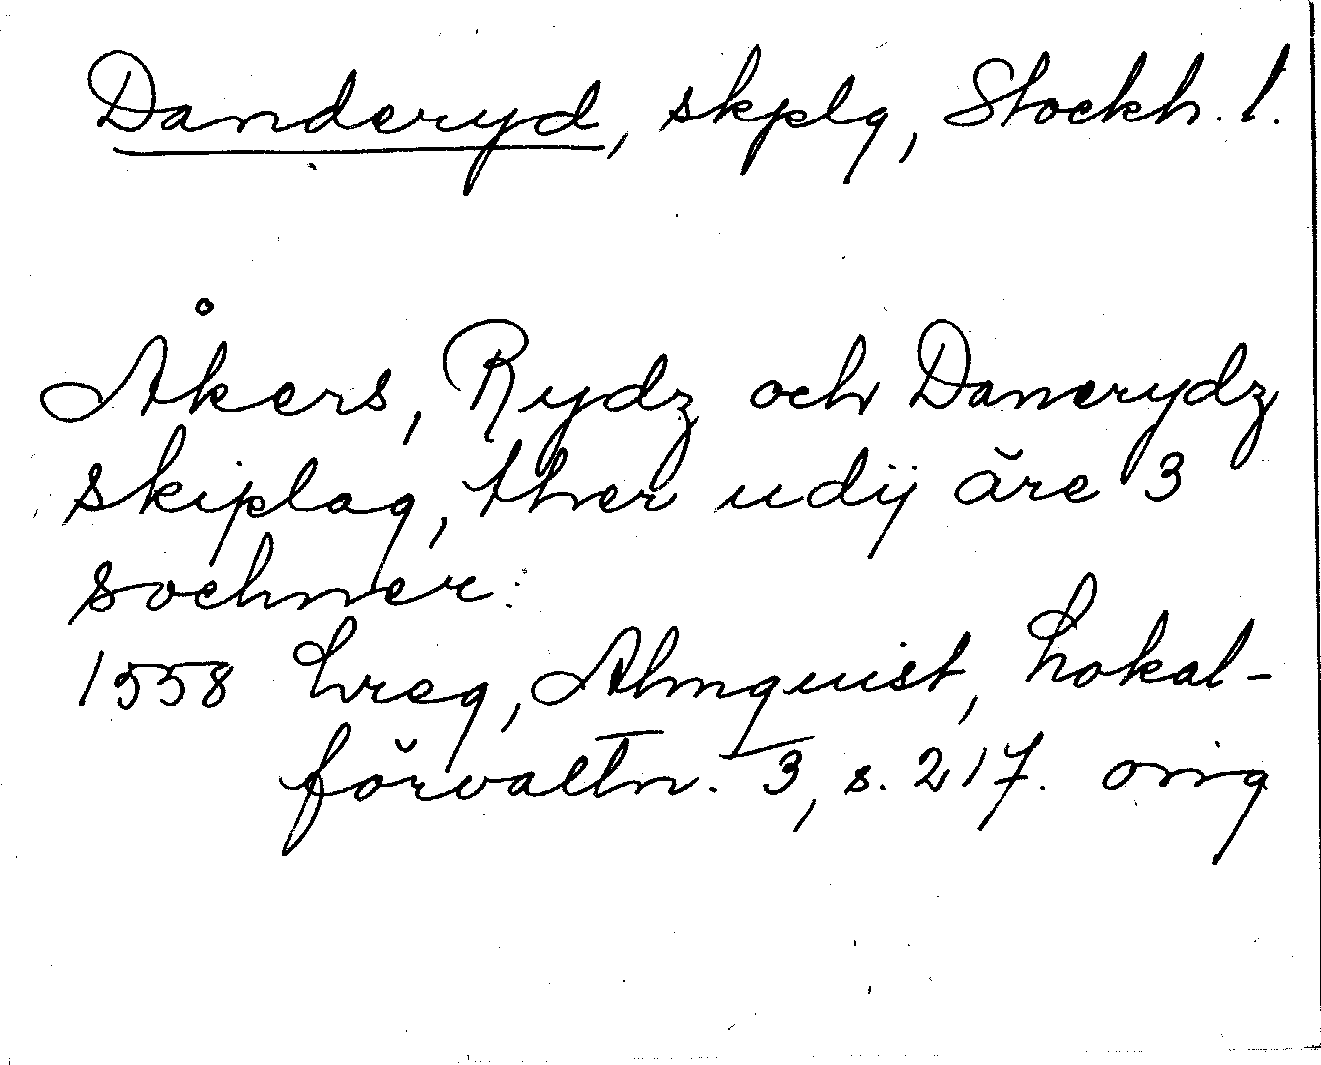 Danderyd, skplg, Stockh. l.
Åkers, Rydz och Danerydz
skiplag, ther udij äre 3
sochner:
1558 Lreg, Almquist, Lokal-
förvaltn. 3, s. 217. orig